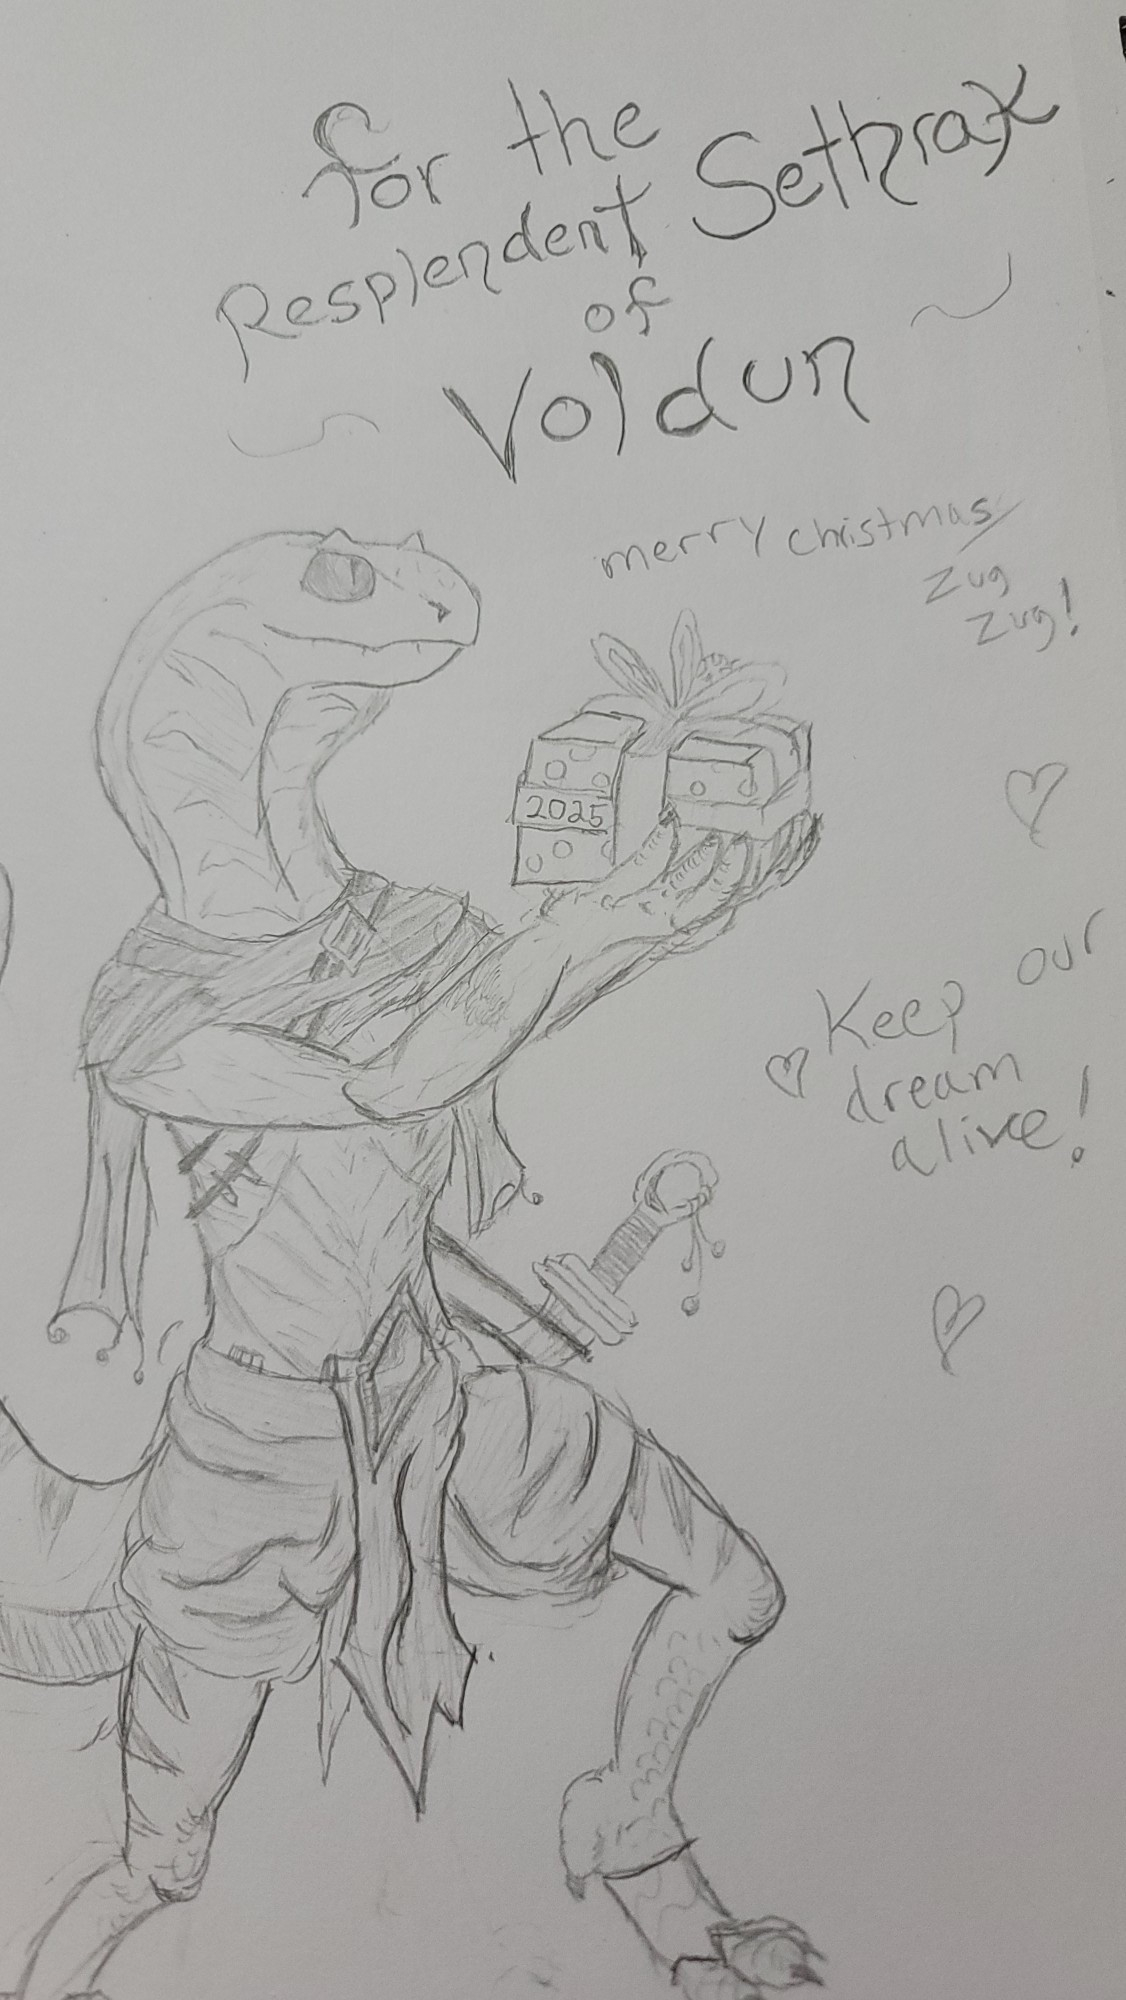 for the
Resplendent Sethrak
of
Voldun
merry christmas
Zug
Zug!
2025
Keep our
dream
alive!